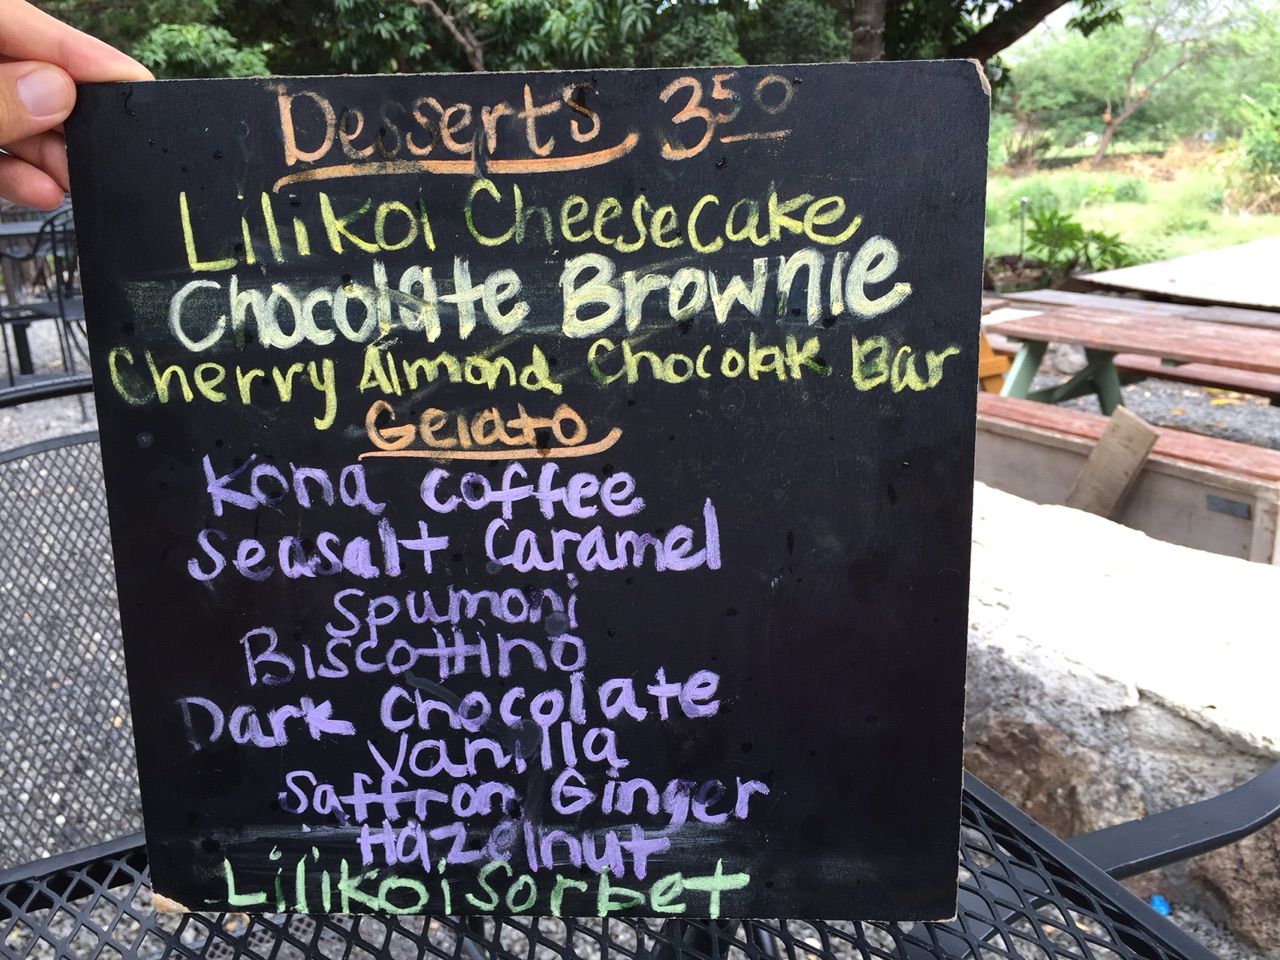 Desserts 3.50
Lilikoi Cheesecake
Chocolate Brownie
Cherry Almond Chocolate Bar
Gelato
Kona coffee
Seasalt Caramel
Spumoni
Biscottino
Dark Chocolate
Vanilla
Saffron Ginger
Hazelnut
Lilikoi sorbet